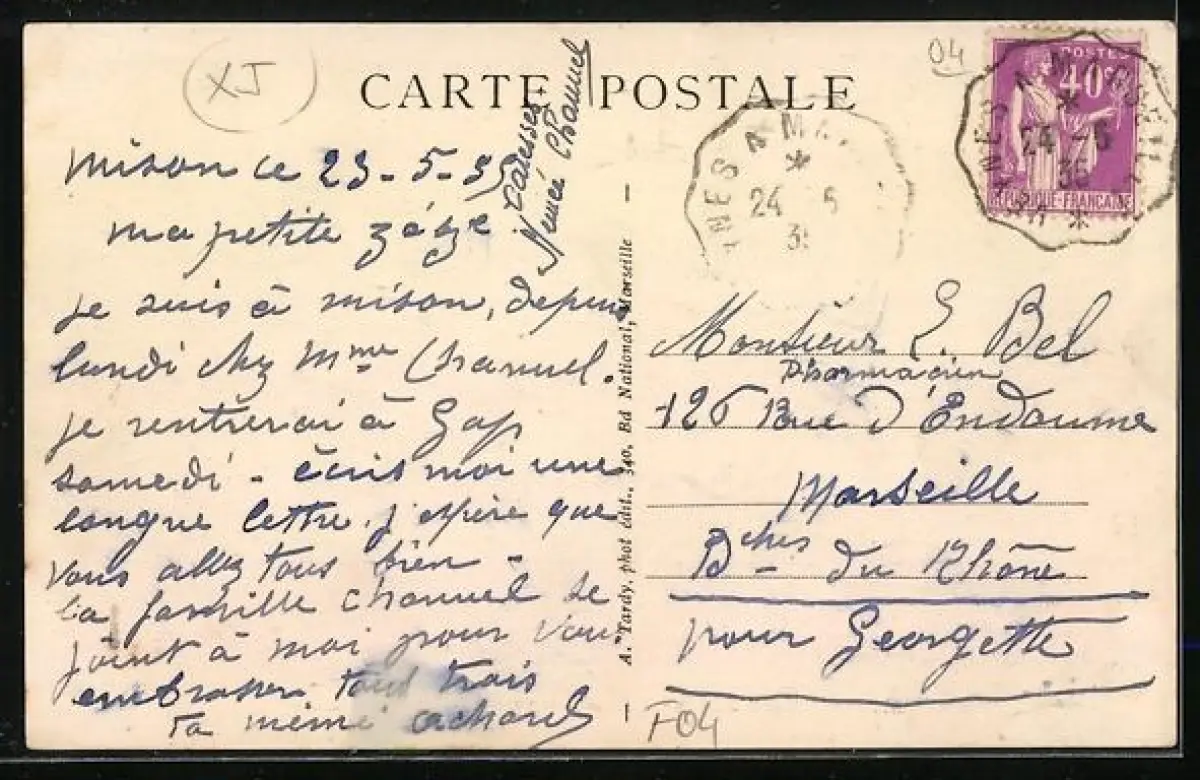 XJ
04
CARTE POSTALE
POSTES
40c
RÉPUBLIQUE-FRANÇAISE
NES A MARSEILLE
24 - 5
35
NES A MA
24 5
35
mison ce 23-5-35
ma petite zézé
je suis à mison, depuis
lundi chez Mme Chanuel.
je rentrerai à Gap
samedi - écris moi une
longue lettre. j'espère que
vous allez tous bien -
la famille chanuel se
joint à moi pour vous
embrasser tous trois
ta mémé achard
caresses
Mémé Chanuel
A. Tardy, phot édit., 340, Bd National, Marseille
Monsieur E. Bel
Pharmacien
126 Rue d'Endoume
Marseille
Bches du Rhône
pour Georgette
F04